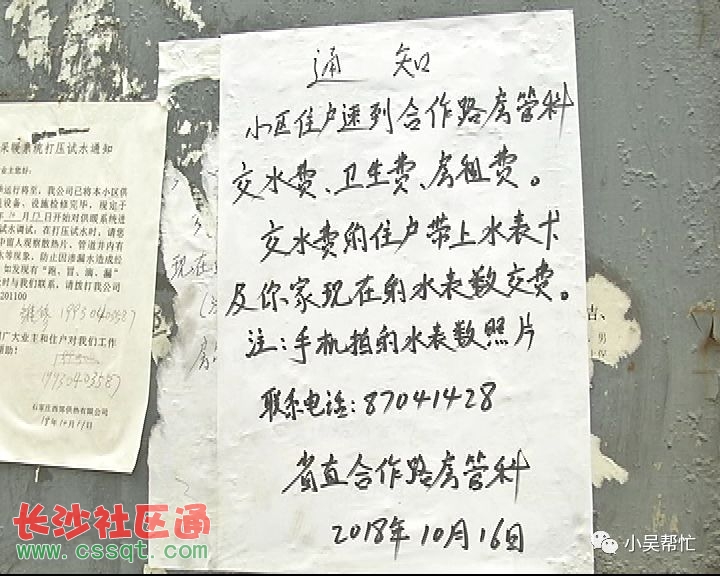 通知
小区住户速到合作路房管科
交水费、卫生费、房租费。
交水费的住户带上水表卡
及你家现在的水表数交费。
注:手机拍的水表数照片
联系电话:87041428
省直合作路房管科
2018年10月16日
采暖系统打压试水通知
业主您好:
运行将至,我公司已将本小区供
设备、设施检修完毕,现定于
年10月13日开始对供暖系统进
试水调试。在打压试水时,请您
中留人观察散热片、管道井内有
水等现象,防止因渗漏水造成经
如发现有“跑、冒、滴、漏”
时与我们联系,请拨打我公司
201100
维修 19930403587
广大业主和住户对我们工作
19930403587
石家庄西郊供热有限公司
18年10月11日
现在
房
洁、
男
长沙社区通
www.cssqt.com
小吴帮忙